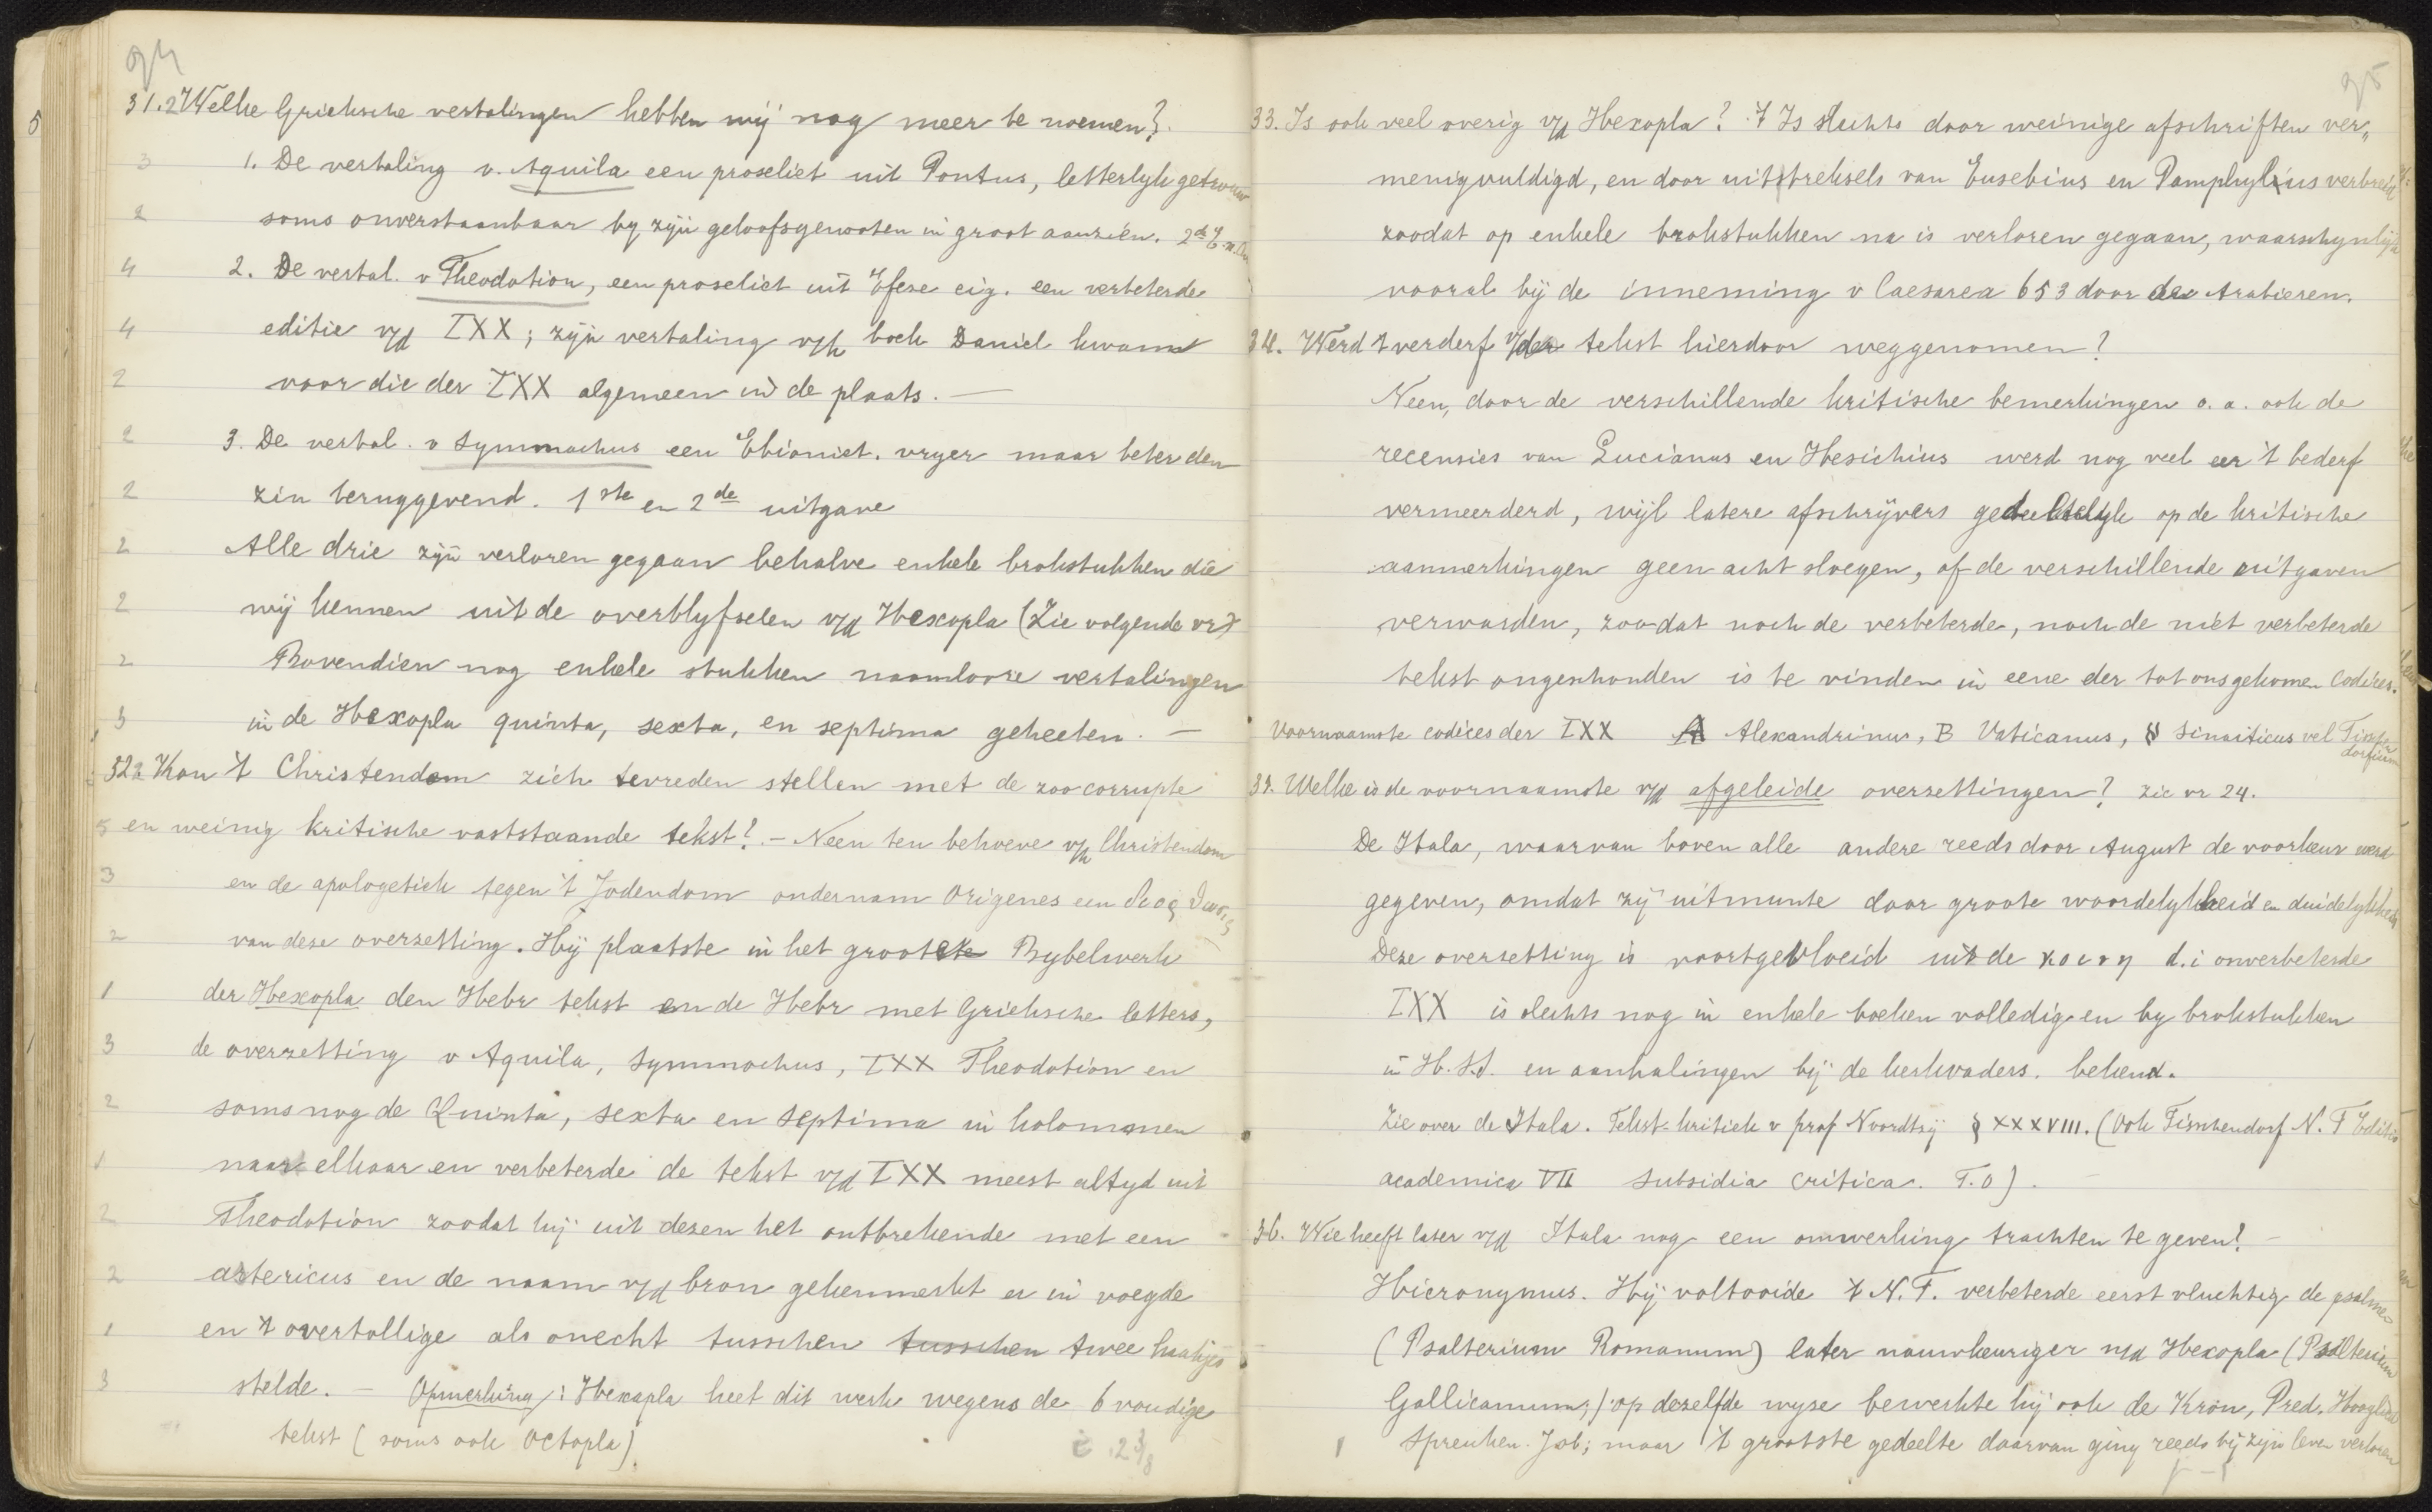 94
31.2 Welke Grieksche vertalingen hebben wij nog meer te noemen?
1. De vertaling v. Aquila een proseliet uit Pontus, letterlyk getrouw
soms onverstaanbaar by zijn geloofsgenooten in groot aanzien. 2de E. n. Chr
2. De vertal. v Theodotion, een proseliet uit Efeze eig. een verbeterde
editie v/d LXX; zijn vertaling v/h boek Daniel kwam
voor die der LXX algemeen in de plaats. —
3. De vertal. v Symmachus een Ebioniet. vryer maar beter den
zin teruggevend. 1ste en 2de uitgave
Alle drie zijn verloren gegaan behalve enkele brokstukken die
wij kennen uit de overblyfselen v/d Hexapla (Zie volgende vr)
Bovendien nog enkele stukken naamlooze vertalingen
in de Hexapla quinta, sexta, en septima geheeten. —
32 Kon 't Christendom zich tevreden stellen met de zoo corrupte
en weinig kritische vaststaande tekst? — Neen ten behoeve v/h Christendom
en de apologetiek tegen 't Jodendom ondernam Origenes een
van deze overzetting. Hij plaatste in het groote Bybelwerk
der Hexapla den Hebr tekst en de Hebr met Grieksche letters,
de overzetting v Aquila, Symmachus, LXX Theodotion en
soms nog de Quinta, sexta en septima in kolommen
naar elkaar en verbeterde de tekst v/d LXX meest altyd uit
Theodotion zoodat hij uit dezen het ontbrekende met een
astericus en de naam v/d bron gekenmerkt er in voegde
en 't overtollige als onecht tusschen tusschen twee haakjes
stelde. — Opmerking: Hexapla heet dit werk wegens de 6 voudige
tekst (soms ook Octopla).
95
33. Is ook veel overig v/d Hexapla? 't Is slechts door weinige afschriften ver„
menigvuldigd, en door uittreksels van Eusebius en Pamphylius verbreid
zoodat op enkele brokstukken na is verloren gegaan, waarschynlijk
vooral bij de inneming v Caesarea 653 door de Arabieren.
34. Werd 't verderf v/den tekst hierdoor weggenomen?
Neen, door de verschillende kritische bemerkingen o. a. ook de
recensies van Lucianus en Hesichius werd nog veel eer 't bederf
vermeerderd, wijl latere afschrijvers gedeeltelyk op de kritische
aanmerkingen geen acht sloegen, of de verschillende uitgaven
verwarden, zoodat noch de verbeterde, noch de niet verbeterde
tekst ongeschonden is te vinden in eene der tot ons gekomen Codices.
Voornaamste codices der LXX A Alexandrinus, B Vaticanus, א Sinaiticus vel Tisch
dorfium
35. Welke is de voornaamste v/d afgeleide overzettingen? zie vr 24.
De Itala, waarvan boven alle andere reeds door August de voorkeur werd
gegeven, omdat zij uitmunte door groote woordelykheid en duidelykheid
Deze overzetting is voortgevloeid uit de κοινη d.i onverbeterde
LXX is slechts nog in enkele boeken volledig en by brokstukken
in H.S.S. en aanhalingen bij de kerkvaders. bekend.
Zie over de Itala. Tekst-kritiek v prof Noordtzij § XXXVIII. (Ook Tischendorf N. T Editio
academica VII subsidia critica. T.O).
36. Wie heeft later v/d Itala nog een omwerking trachten te geven?
Hieronymus. Hij voltooide 't N.T. verbeterde eerst vluchtig de psalmen
(Psalterium Romanum) later nauwkeuriger n/d Hexapla (Psalterium
Gallicanum;) op dezelfde wyse bewerkte hij ook de Kron, Pred. Hooglied
Spreuken. Job; maar 't grootste gedeelte daarvan ging reeds bij zijn leven verloren